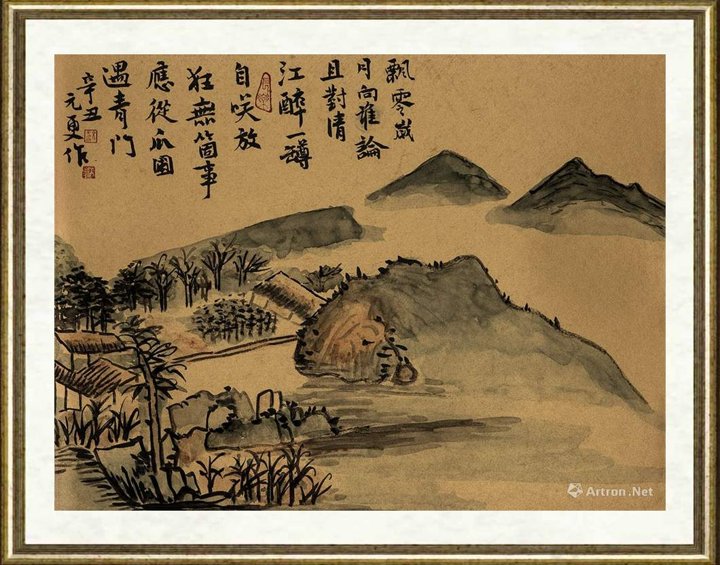 飄零歲
月向誰論
且對清
江醉一罇
自笑放
狂無箇事
應從瓜圃
遇青門
辛丑
元更作
Artron.Net